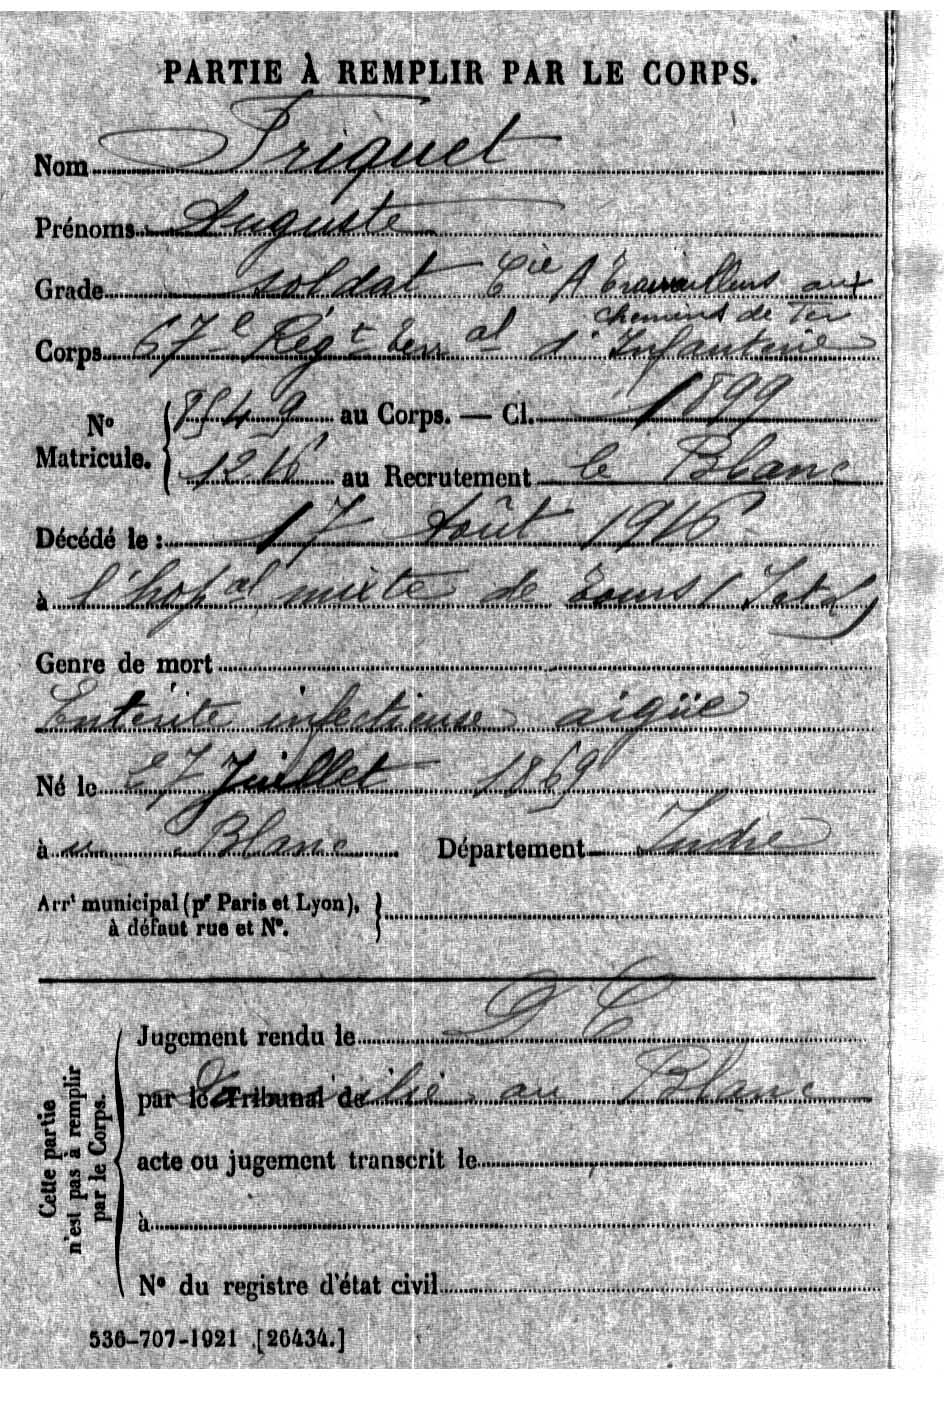 PARTIE À REMPLIR PAR LE CORPS.
Nom Triquet
Prénoms Auguste
Grade soldat Cie A travailleurs aux
chemins de fer
Corps 67e Régt terral d'Infanterie
No Matricule. 9549 au Corps. — Cl. 1899
1216 au Recrutement le Blanc
Décédé le : 17 Août 1916
à l'hopal mixte de Tours (I et L)
Genre de mort
Entérite infectieuse aigüe
Né le 27 Juillet 1869
à Blanc Département Indre
Arrt municipal (pr Paris et Lyon),
à défaut rue et No.
Cette partie
n'est pas à remplir
par le Corps.
Jugement rendu le D C
par le Tribunal de Domicilié au Blanc
acte ou jugement transcrit le
à
No du registre d'état civil
536-707-1921 [26434.]